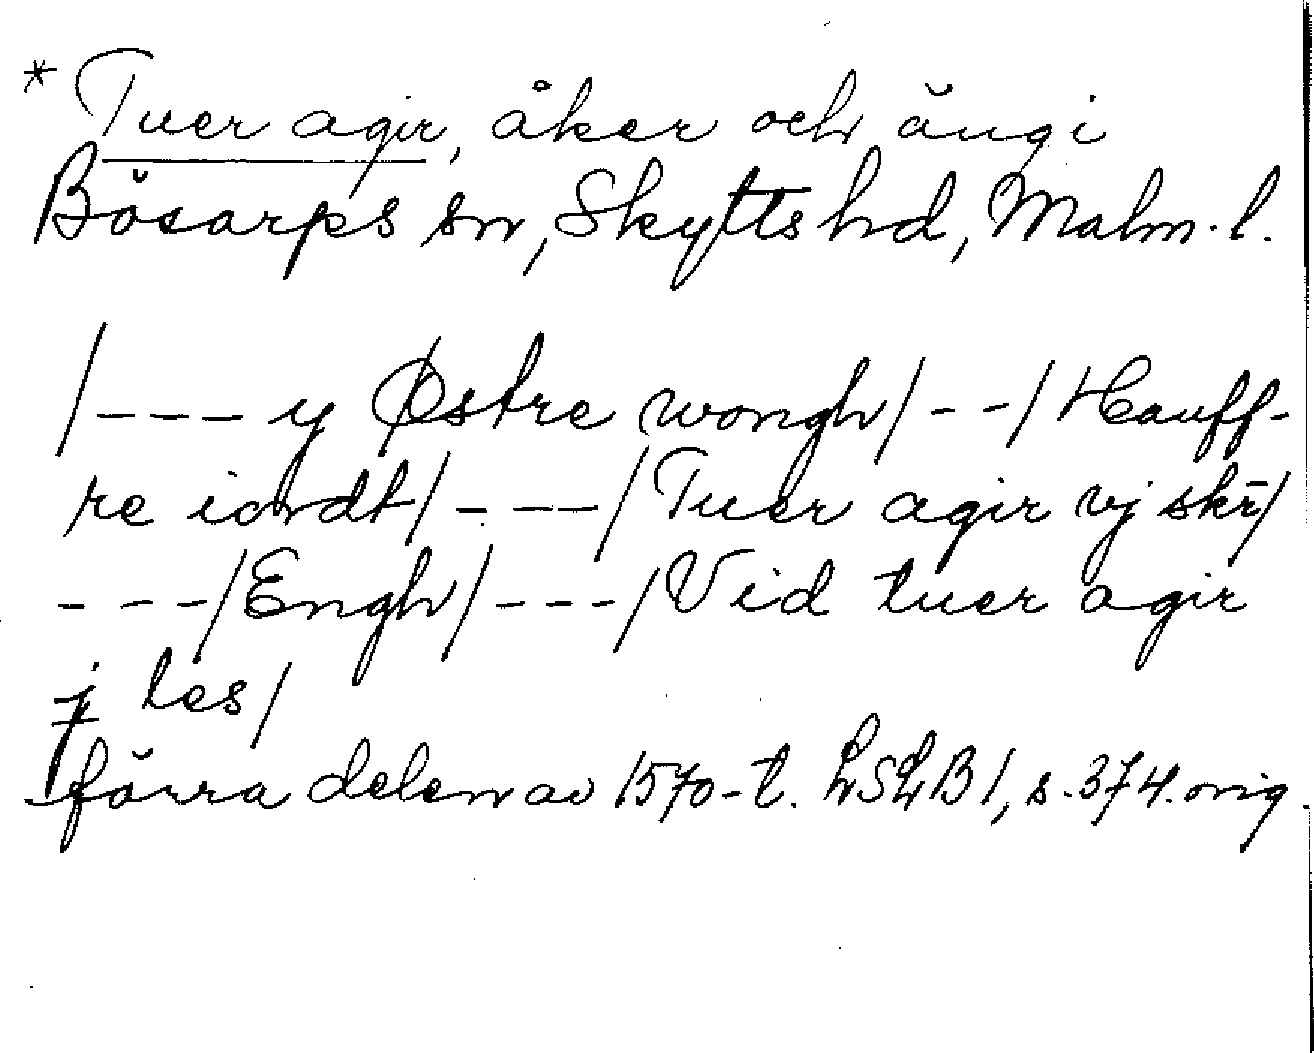 * Tuer agir, åker och äng i
Bösarps sn, Skytts hd, Malm. l.
/---y Østre wongh/--/Hauff-
re iordt/----/Tuer agir vj skr̄/
---/Engh/---/Vid tuer agir
j les/
förra delen av 1570-t. LSLB 1, s. 374. orig.